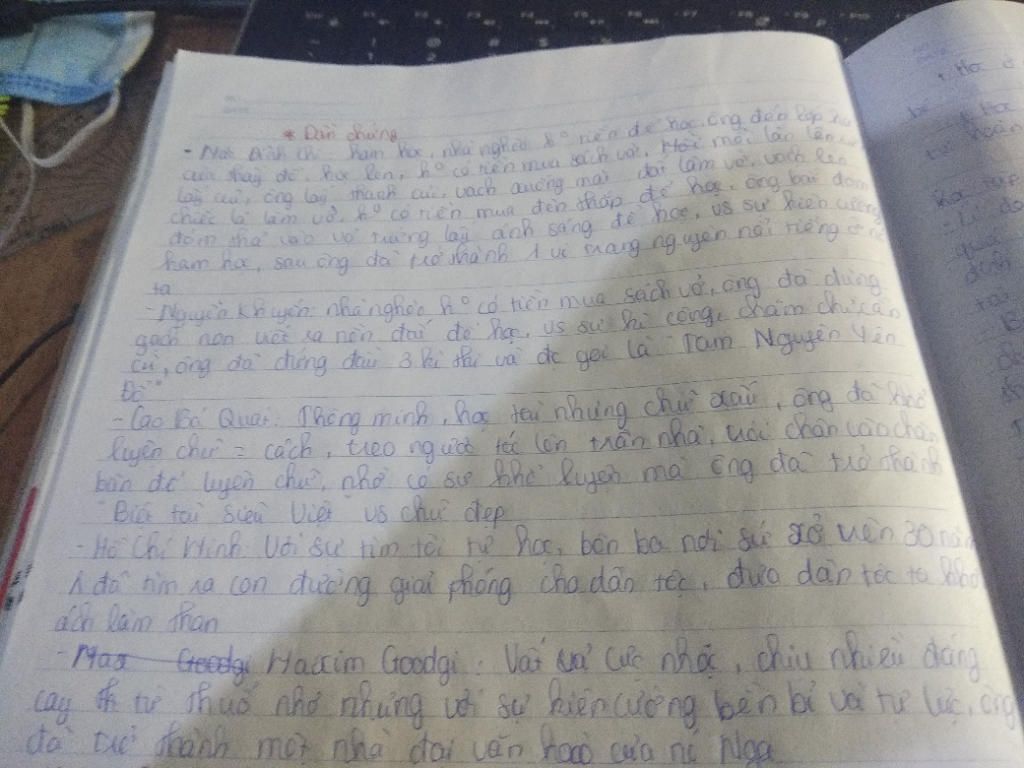 * Dẫn chứng
- Mạc Đĩnh Chi: ham học, nhà nghèo, k° tiền để học, ông đến lớp
của thầy đồ, học lén, k° có tiền mua sách vở, Mỗi lần lên
lấy củi, ông lấy thanh củi, vạch xuống mặt đất làm vở, vạch lên
chiếc lá làm vở, k° có tiền mua đèn thắp để học, ông bắt đom
đóm thả vào vỏ trứng lấy ánh sáng để học, vs sự kiên cường
ham học, sau ông đã trở thành 1 vị trạng nguyên nổi tiếng ở
ta
- Nguyễn Khuyến: nhà nghèo, k° có tiền mua sách vở, ông đã dùng
gạch non viết ra nền đất để học, vs sự kì công, chăm chỉ cần
cù, ông đã đứng đầu 3 kì thi và đc gọi là "Tam Nguyên Yên
Đổ"
- Cao Bá Quát: Thông minh, học tài nhưng chữ xấu, ông đã khổ
luyện chữ = cách, treo ngược tóc lên trần nhà, chân vào chân
bàn để luyện chữ, nhờ có sự khổ luyện mà ông đã trở thành
tài Việt vs chữ đẹp
- Hồ Chí Minh: Với sự tìm tòi tự học, bôn ba nơi xứ 30 năm
đã tìm ra con đường giải phóng cho dân tộc, đưa dân tộc ta khỏi
ách lầm than
- Macxim Goodgi: Vất vả cực nhọc, chịu nhiều đắng
cay từ thuở nhỏ nhưng với sự kiên cường bền bỉ và tự lực, ông
đã trở thành một nhà đại văn hào của nc Nga